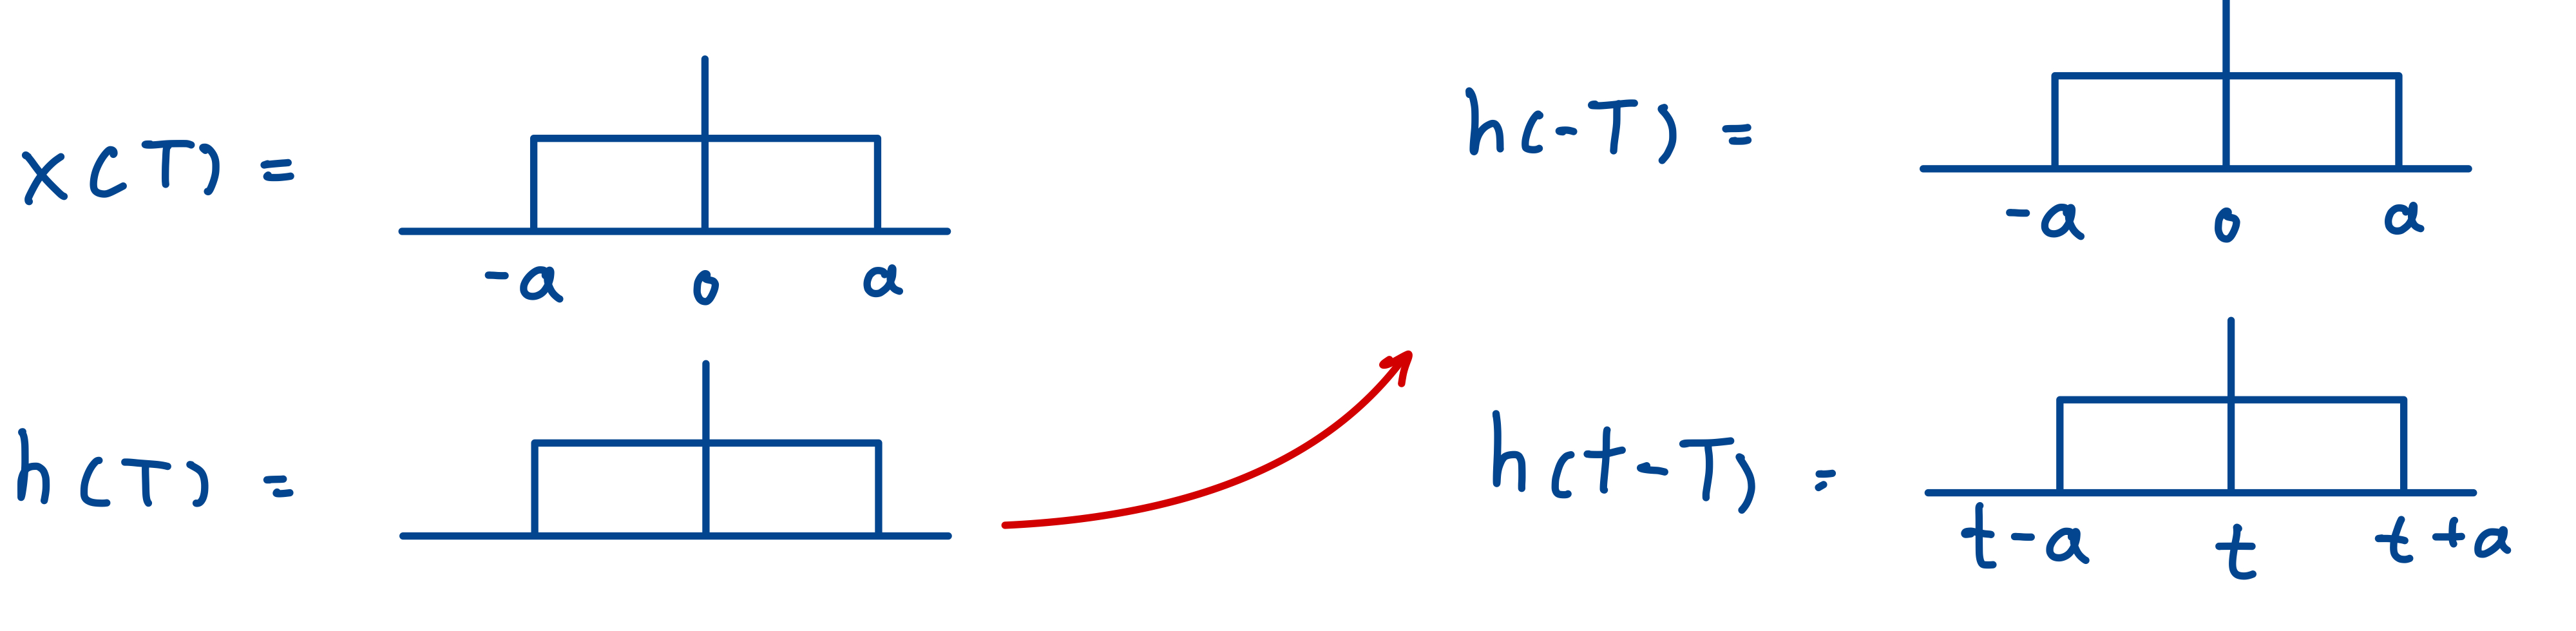 x(T) =
-a 0 a
h(T) =
h(-T) =
-a 0 a
h(t-T) =
t-a t t+a